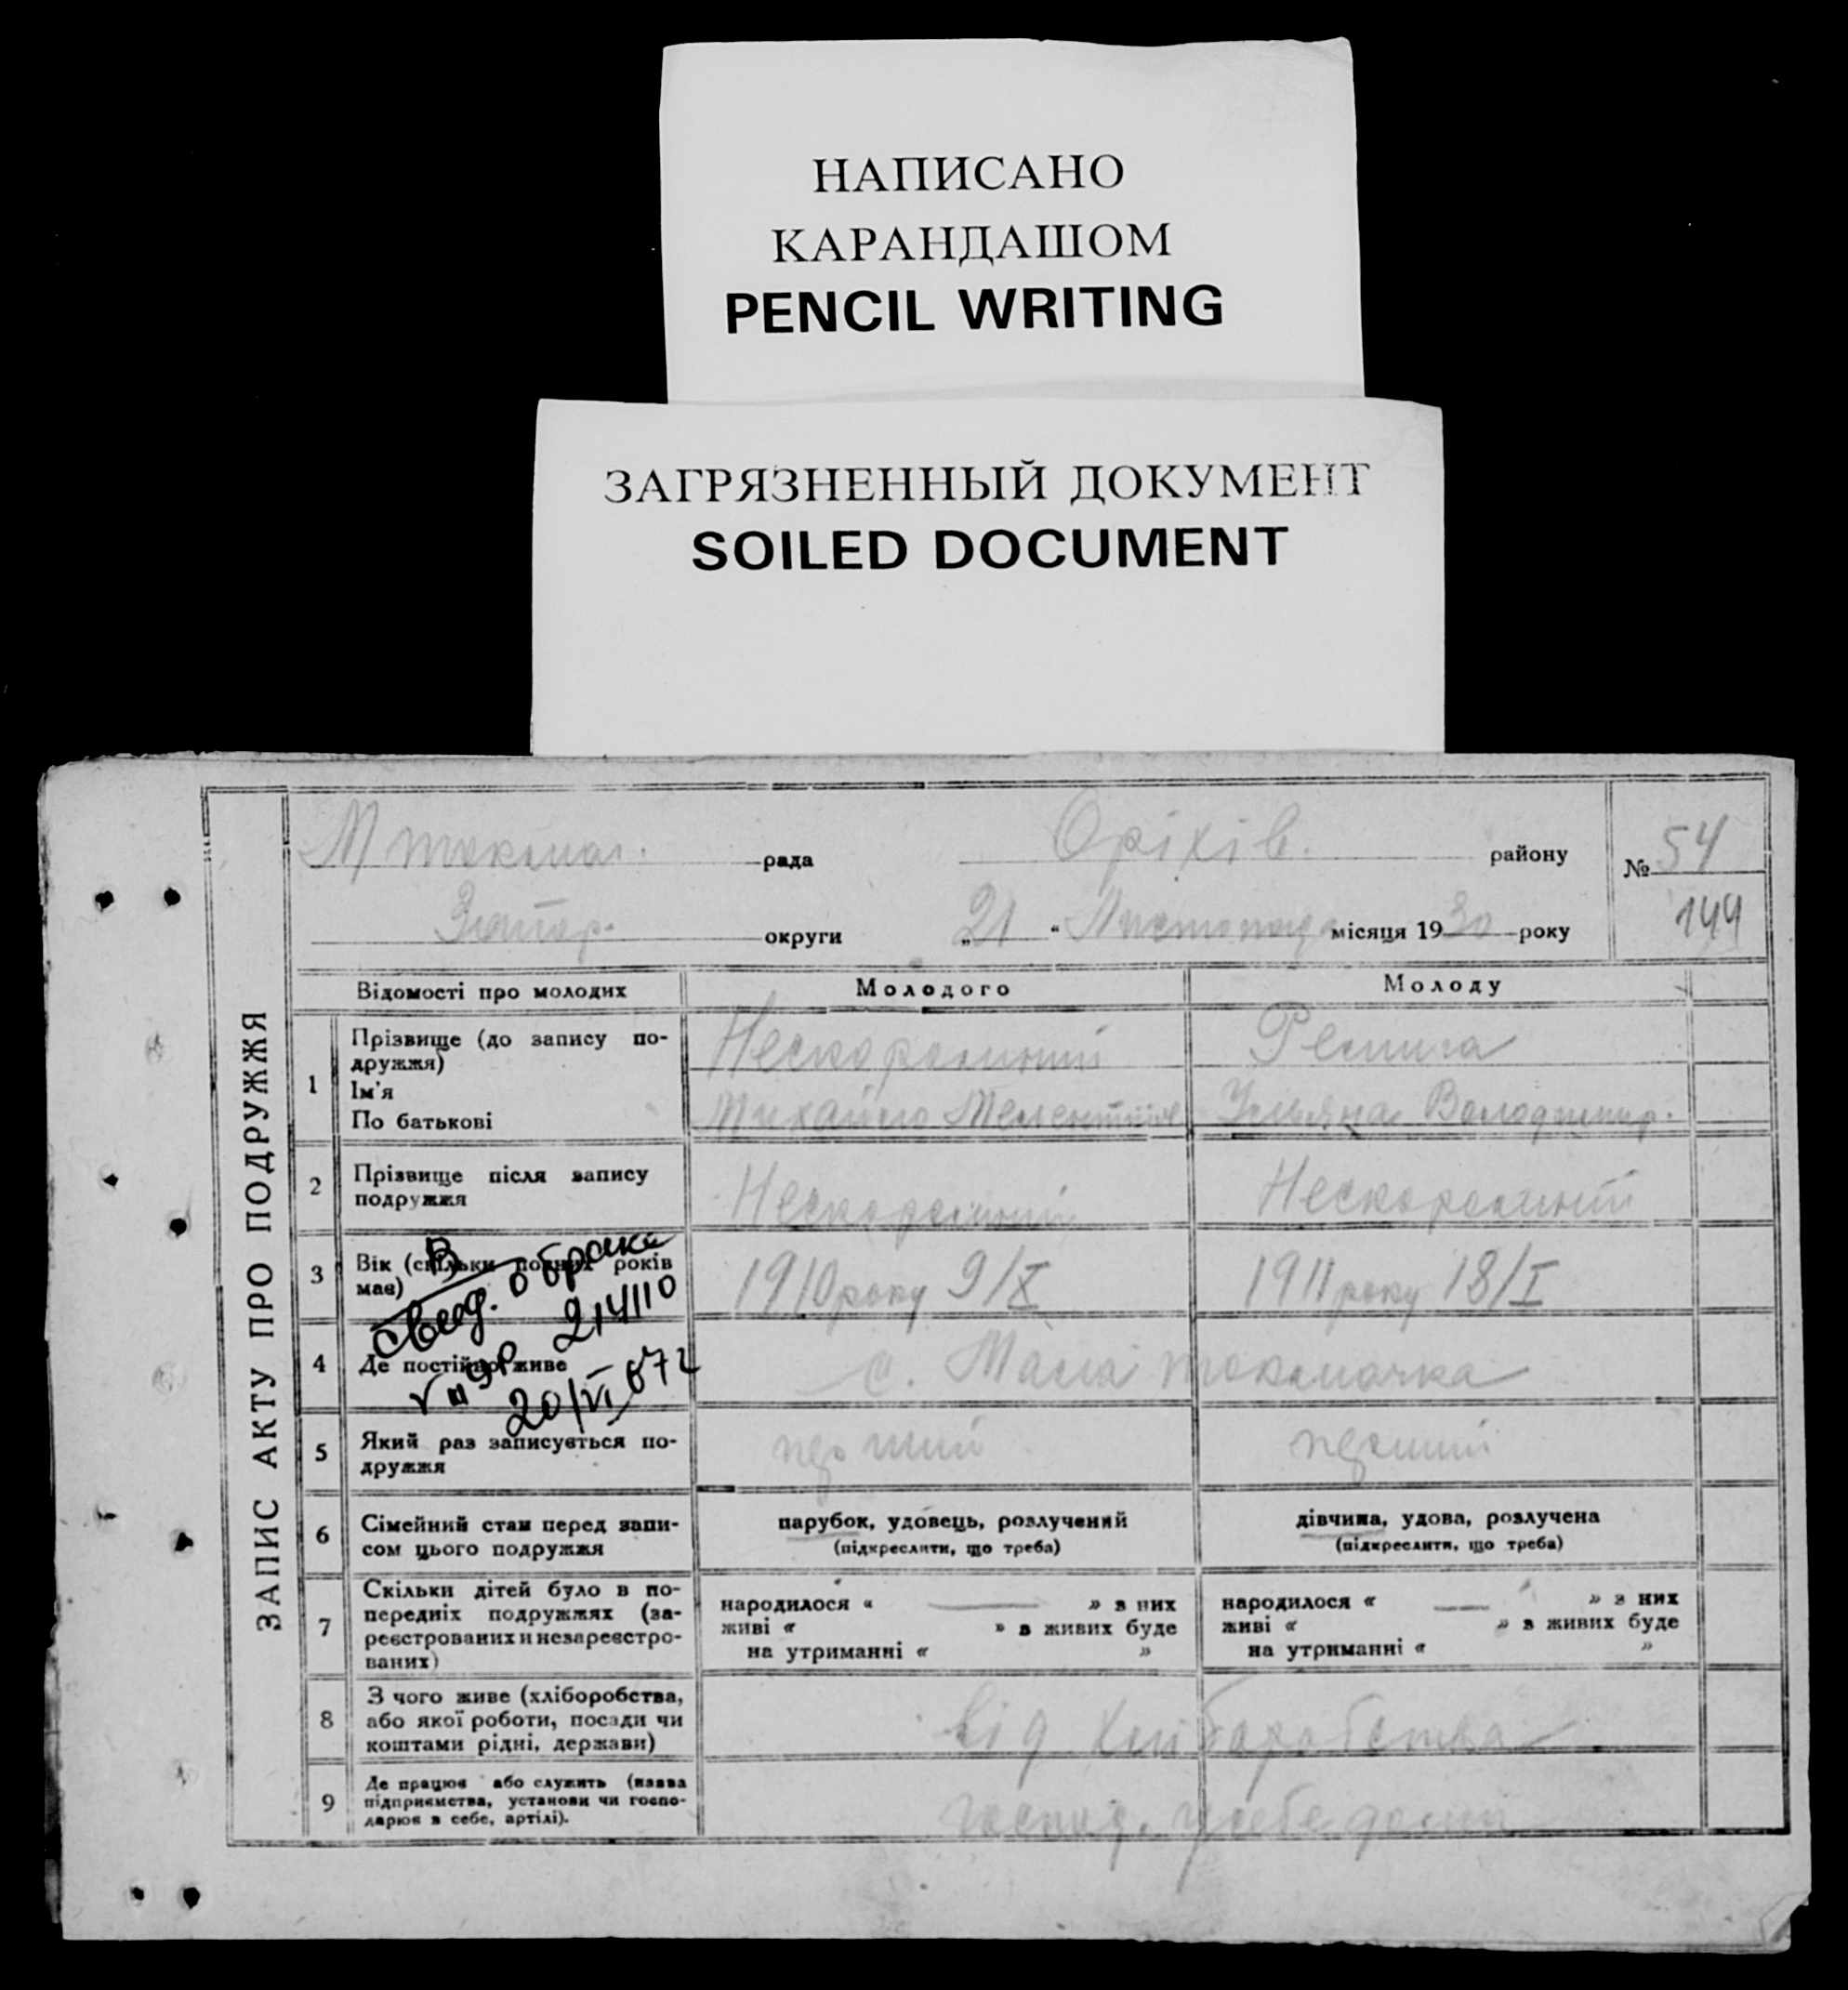 НАПИСАНО
КАРАНДАШОМ
PENCIL WRITING
ЗАГРЯЗНЕННЫЙ ДОКУМЕНТ
SOILED DOCUMENT
ЗАПИС АКТУ ПРО ПОДРУЖЖЯ
М токмач. рада Оріхів. району № 54
Запор. округи „ 21 “ Листопада місяця 1930 року 144
Відомості про молодих Молодого Молоду
1 Прізвище (до запису по-
дружжя) Нескоромний
Ім'я
По батькові Михайло Уляна Володимир.
2 Прізвище після запису
подружжя Нескоромний Нескоромний
3 Вік (скільки повних років
має) 1910 року 9/X 1911 року 18/I
В
свед. о браке
214110
20/VI 672
4 Де постійно живе с. Мала токмачка
5 Який раз записується по-
дружжя перший перший
6 Сімейний стан перед запи-
сом цього подружжя
парубок, удовець, розлучений
(підкреслити, що треба)
дівчина, удова, розлучена
(підкреслити, що треба)
7 Скільки дітей було в по-
передніх подружжях (за-
реєстрованих и незареєстро-
ваних)
народилося « — » з них
живі « » в живих буде
на утриманні « »
народилося « — » з них
живі « » в живих буде
на утриманні « »
8 З чого живе (хліборобства,
або якої роботи, посади чи
коштами рідні, держави)
від хліборобства
9 Де працює або служить (назва
підприємства, установи чи госпо-
дарює в себе, артілі).
господ. у себе дома